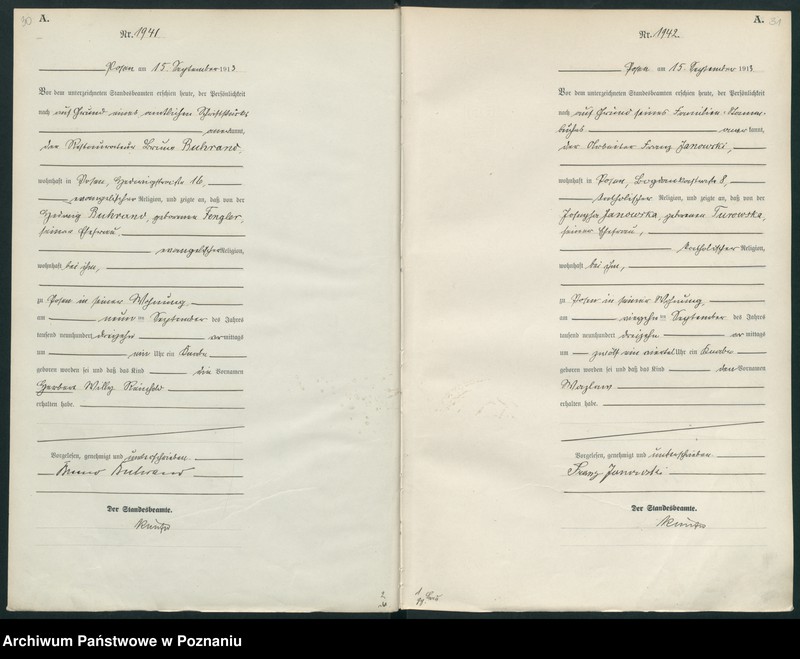 30 A.
Nr. 1941
Posen am 15. September 1913
Vor dem unterzeichneten Standesbeamten erschien heute, der Persönlichkeit
nach auf Grund eines amtlichen Schriftstücks
anerkannt,
der Restaurateur Bruno Buhrand,
wohnhaft in Posen, Hedwigstraße 16,
evangelischer Religion, und zeigte an, daß von der
Hedwig Buhrand, geborenen Fengler,
seiner Ehefrau,
evangelischer Religion,
wohnhaft bei ihm,
zu Posen in seiner Wohnung
am neunten September des Jahres
tausend neunhundert dreizehn vormittags
um ein Uhr ein Knabe
geboren worden sei und daß das Kind die Vornamen
Herbert Willy Reinhold
erhalten habe.
Vorgelesen, genehmigt und unterschrieben
Bruno Buhrand
Der Standesbeamte.
A. 31
Nr. 1942
Posen am 15. September 1913
Vor dem unterzeichneten Standesbeamten erschien heute, der Persönlichkeit
nach auf Grund seines Familien-Stamm-
buches anerkannt,
der Arbeiter Franz Janowski,
wohnhaft in Posen, 8,
katholischer Religion, und zeigte an, daß von der
Josepha Janowska, geborenen Turowska,
seiner Ehefrau,
katholischer Religion,
wohnhaft bei ihm,
zu Posen in seiner Wohnung,
am vierzehnten September des Jahres
tausend neunhundert dreizehn vormittags
um zwölf ein viertel Uhr ein Knabe
geboren worden sei und daß das Kind den Vornamen
Wazlaw
erhalten habe.
Vorgelesen, genehmigt und unterschrieben
Franz Janowski
Der Standesbeamte.
Archiwum Państwowe w Poznaniu